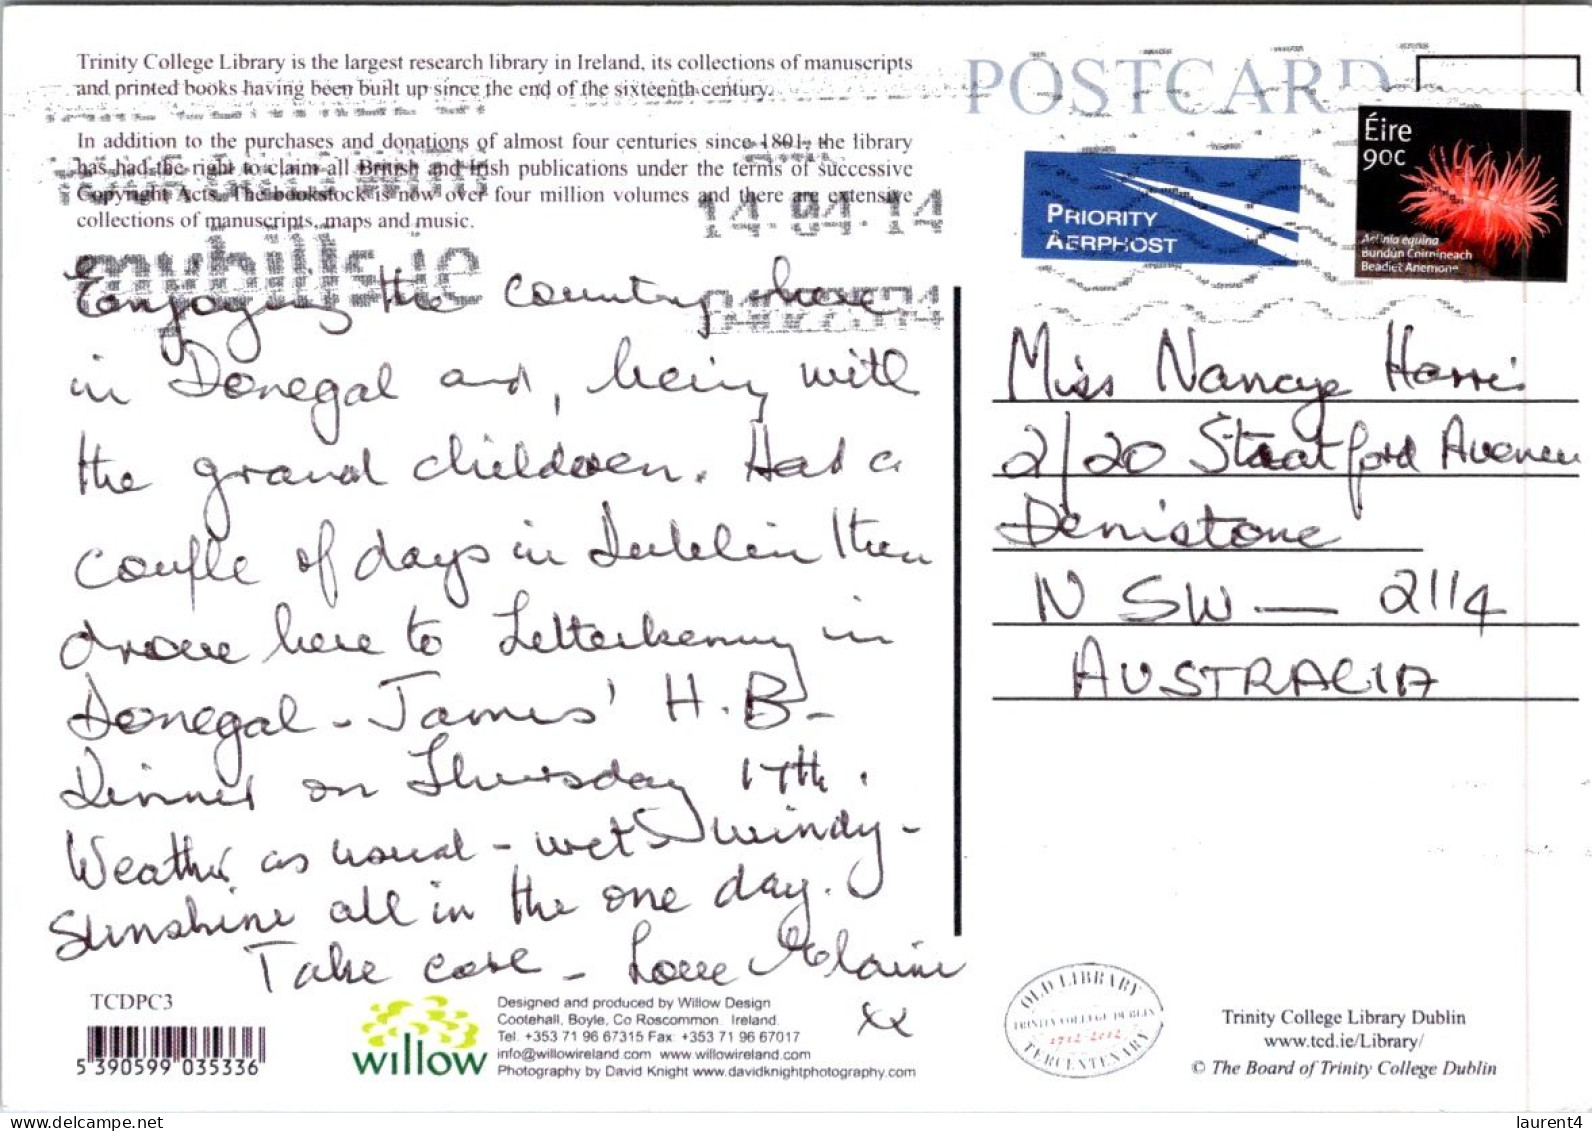 Trinity College Library is the largest research library in Ireland, its collections of manuscripts
and printed books having been built up since the end of the sixteenth century.
In addition to the purchases and donations of almost four centuries since 1801, the library
has had the right to claim all British and Irish publications under the terms of successive
Copyright Acts. The bookstock is now over four million volumes and there are extensive
collections of manuscripts, maps and music.
POSTCARD
Éire
90c
Actinia equina
Bundún Coirníneach
Beadlet Anemone
PRIORITY
AERPHOST
14-04-14
mybills.ie
Enjoying the country here
in Donegal and, being with
the grand children. Had a
couple of days in Dublin then
drove here to Letterkenny in
Donegal - James' H.B-
Dinner on Thursday 17th.
Weather as usual - wet & windy -
Sunshine all in the one day.
Take care - Love Elaine
xx
Miss Nancye Harris
2/20 Stratford Avenue
Denistone
NSW — 2114
AUSTRALIA
TCDPC3
5 390599 035336
willow
Designed and produced by Willow Design
Cootehall, Boyle, Co Roscommon. Ireland.
Tel. +353 71 96 67315 Fax: +353 71 96 67017
info@willowireland.com www.willowireland.com
Photography by David Knight www.davidknightphotography.com
OLD LIBRARY
TRINITY COLLEGE DUBLIN
1712-2012
TERCENTENARY
Trinity College Library Dublin
www.tcd.ie/Library/
© The Board of Trinity College Dublin
laurent4